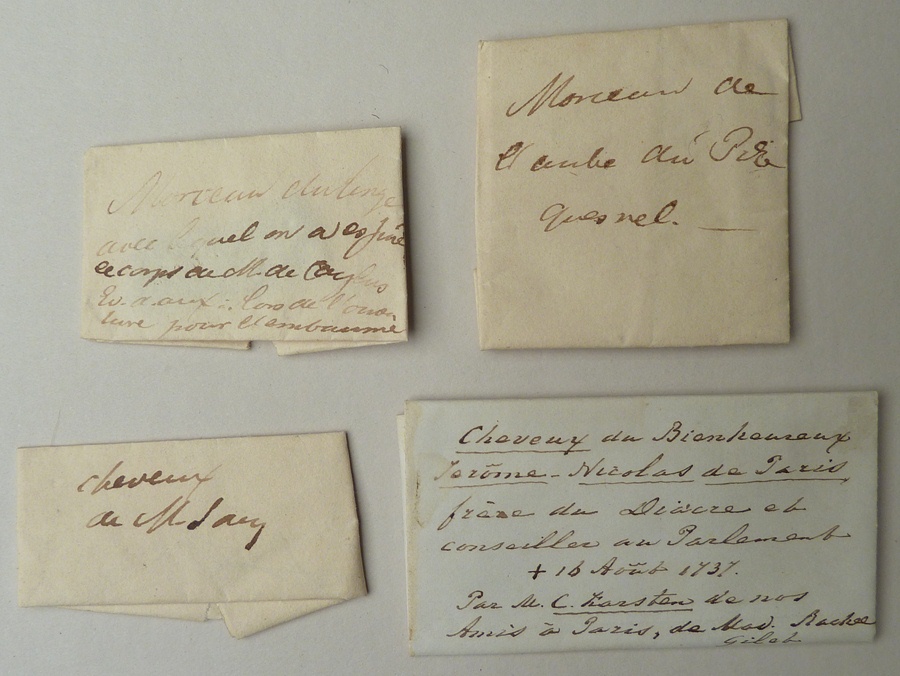 Morceau du linge
avec lequel on a essuié
le corps de M. de Caylus
Ev. d'aux.: lors de l'ouver
ture pour l'embaumé
Morceau de
l'aube du Père
quesnel.
cheveux
de M
Cheveux du Bienheureux
Jerôme-Nicolas de Paris
frère du Diacre et
conseiller au Parlement
+ 16 Août 1737.
Par M. C. Karsten de nos
Amis à Paris, de Mad. Rachel
Gilet